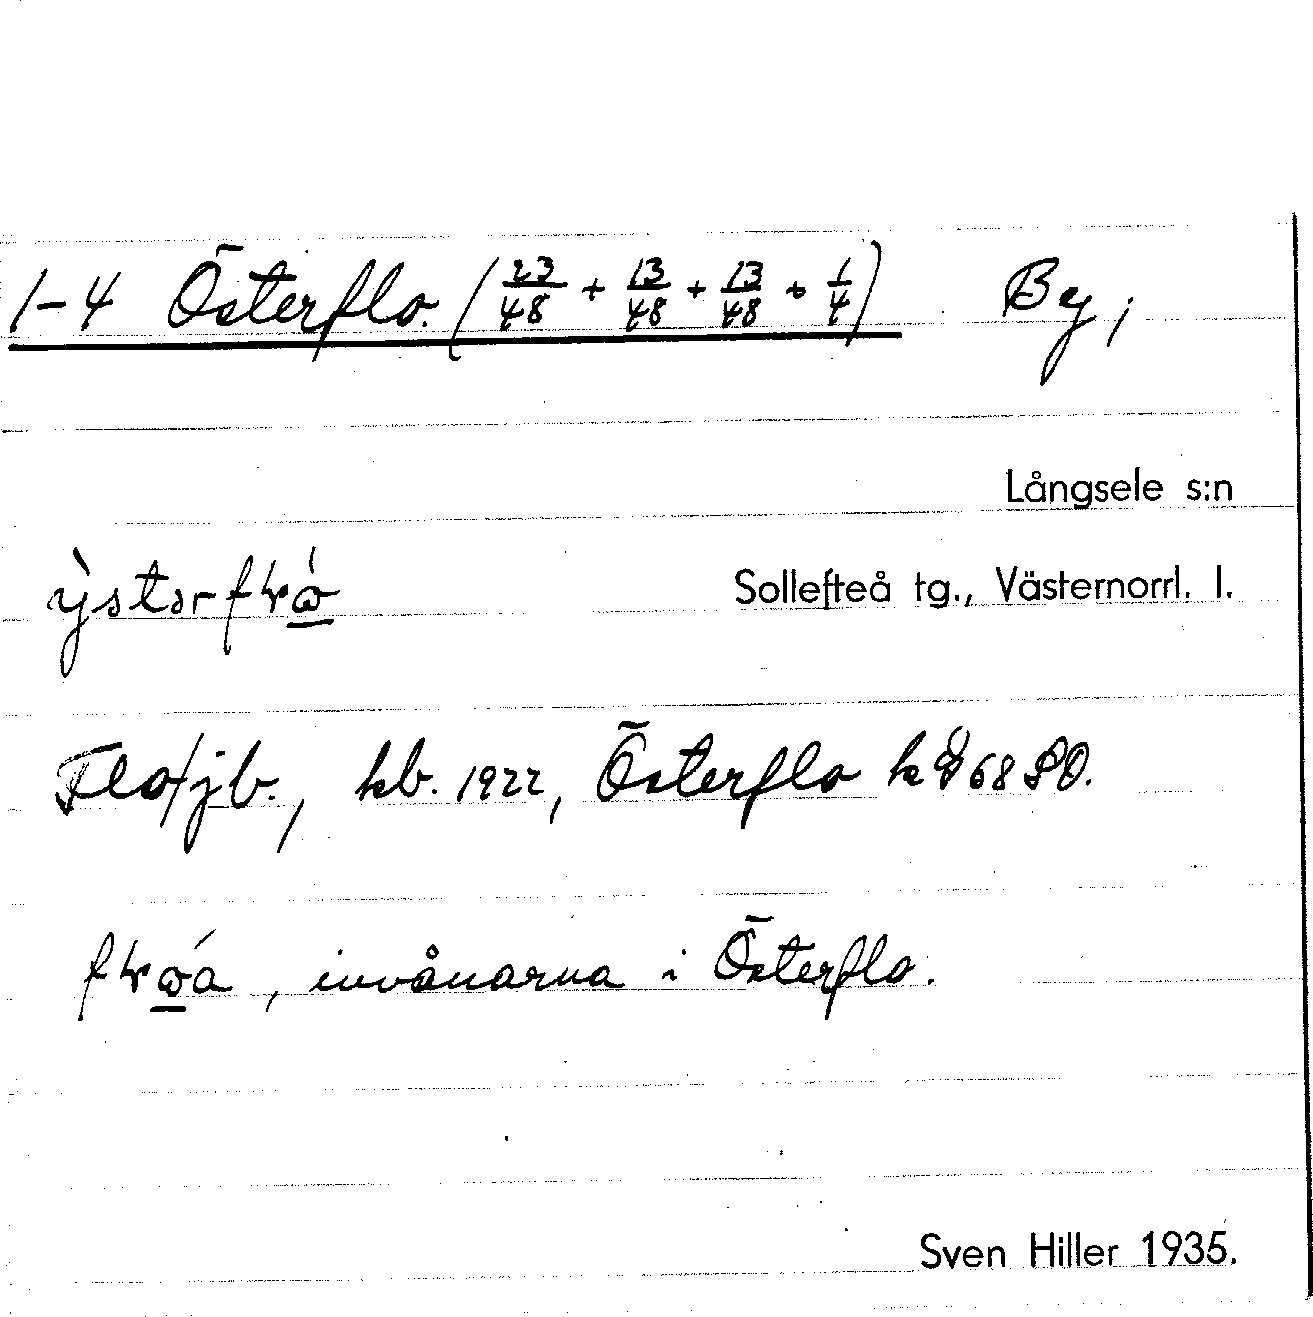 1-4 Österflo. (23/48 + 13/48 + 13/48 + 1/4) By;
Långsele s:n
Sollefteå tg., Västernorrl. l.
Flo jb., kb. 1922, Österflo k 68 SO.
, invånarna i Österflo.
Sven Hiller 1935.